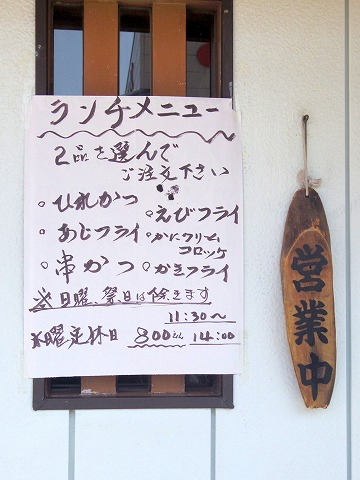 ランチメニュー
2品を選んで
ご注文下さい
・ひれかつ ・えびフライ
・あじフライ ・かにクリーム
コロッケ
・串かつ ・かきフライ
※日曜、祭日は除きます
11:30～
水曜定休日 800えん 14:00
営業中